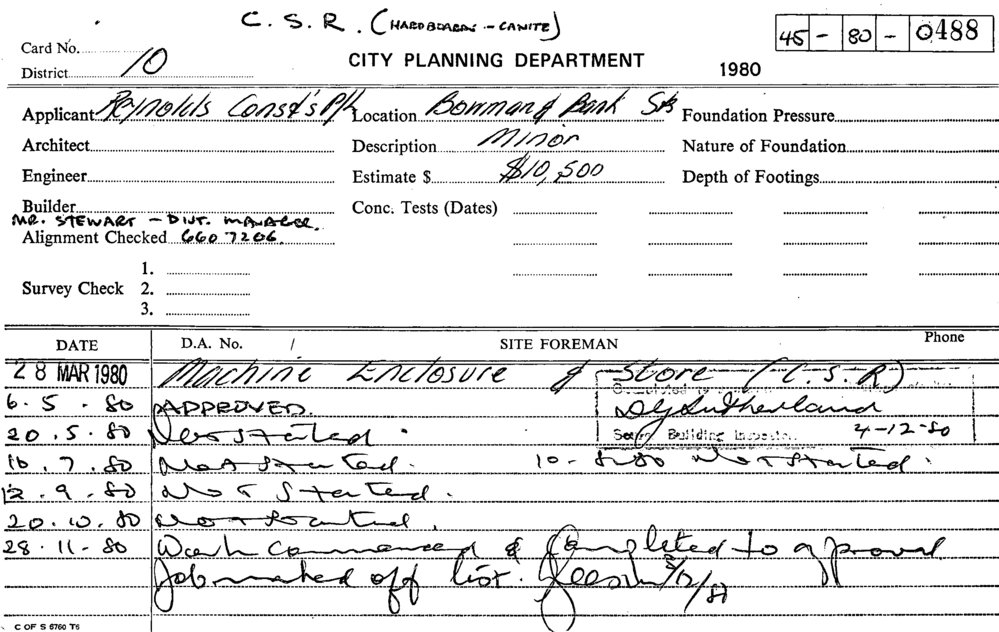 C. S. R. (HARDBOARDS - CANITE)
45 - 80 - 0488
Card No.
District 10
CITY PLANNING DEPARTMENT
1980
Applicant Reynolds Const's P/L Location Bowman & Bank Sts Foundation Pressure
Architect Description Minor Nature of Foundation
Engineer Estimate $ $10,500 Depth of Footings
Builder Conc. Tests (Dates)
MR. STEWART - DIV. MANAGER.
Alignment Checked 660 7206.
1.
Survey Check 2.
3.
DATE D.A. No. / SITE FOREMAN Phone
28 MAR 1980 Machine Enclosure & Store (C.S.R)
6.5.80 APPROVED. Sutherland
20.5.80 Not started. Building Inspector 4-12-80
16.7.80 Not Started. 10-8-80 Not Started.
12.9.80 Not Started.
20.10.80 Not Started.
28.11.80 Work commenced & Completed to approval
Job marked off list.
C OF S 6760 T6